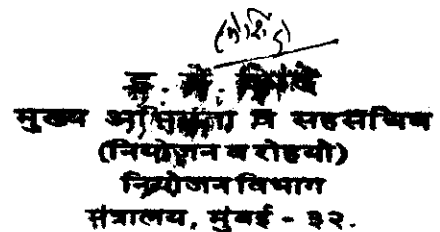 मुख्य अभियंता व सहसचिव
(नियोजन व रोहयो)
नियोजन विभाग
मंत्रालय, मुंबई - ३२.